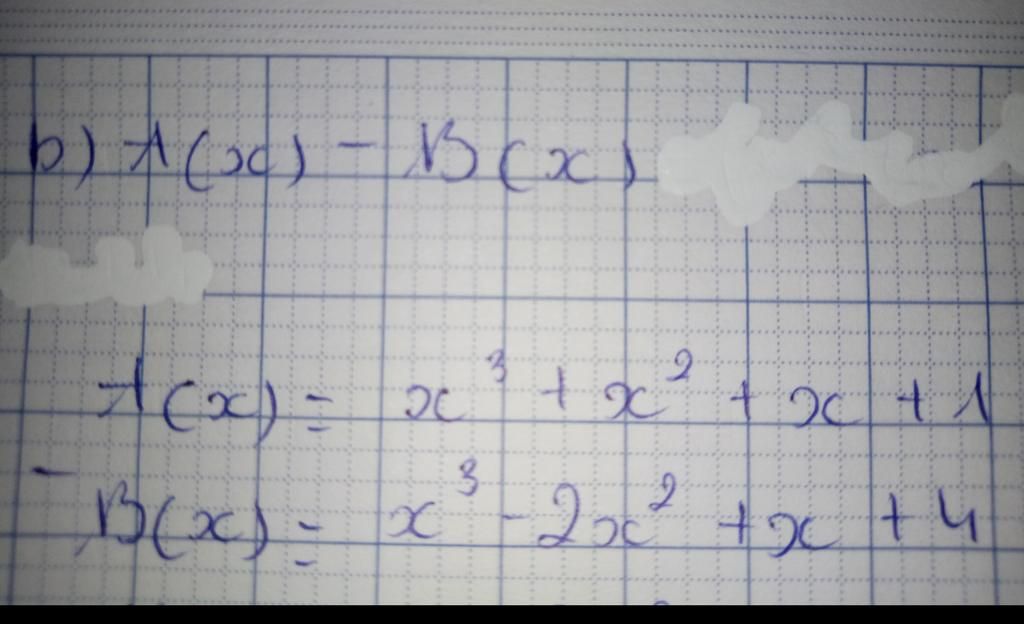 b) A(x) - B(x)
A(x) = x³ + x² + x + 1
- B(x) = x³ - 2x² + x + 4